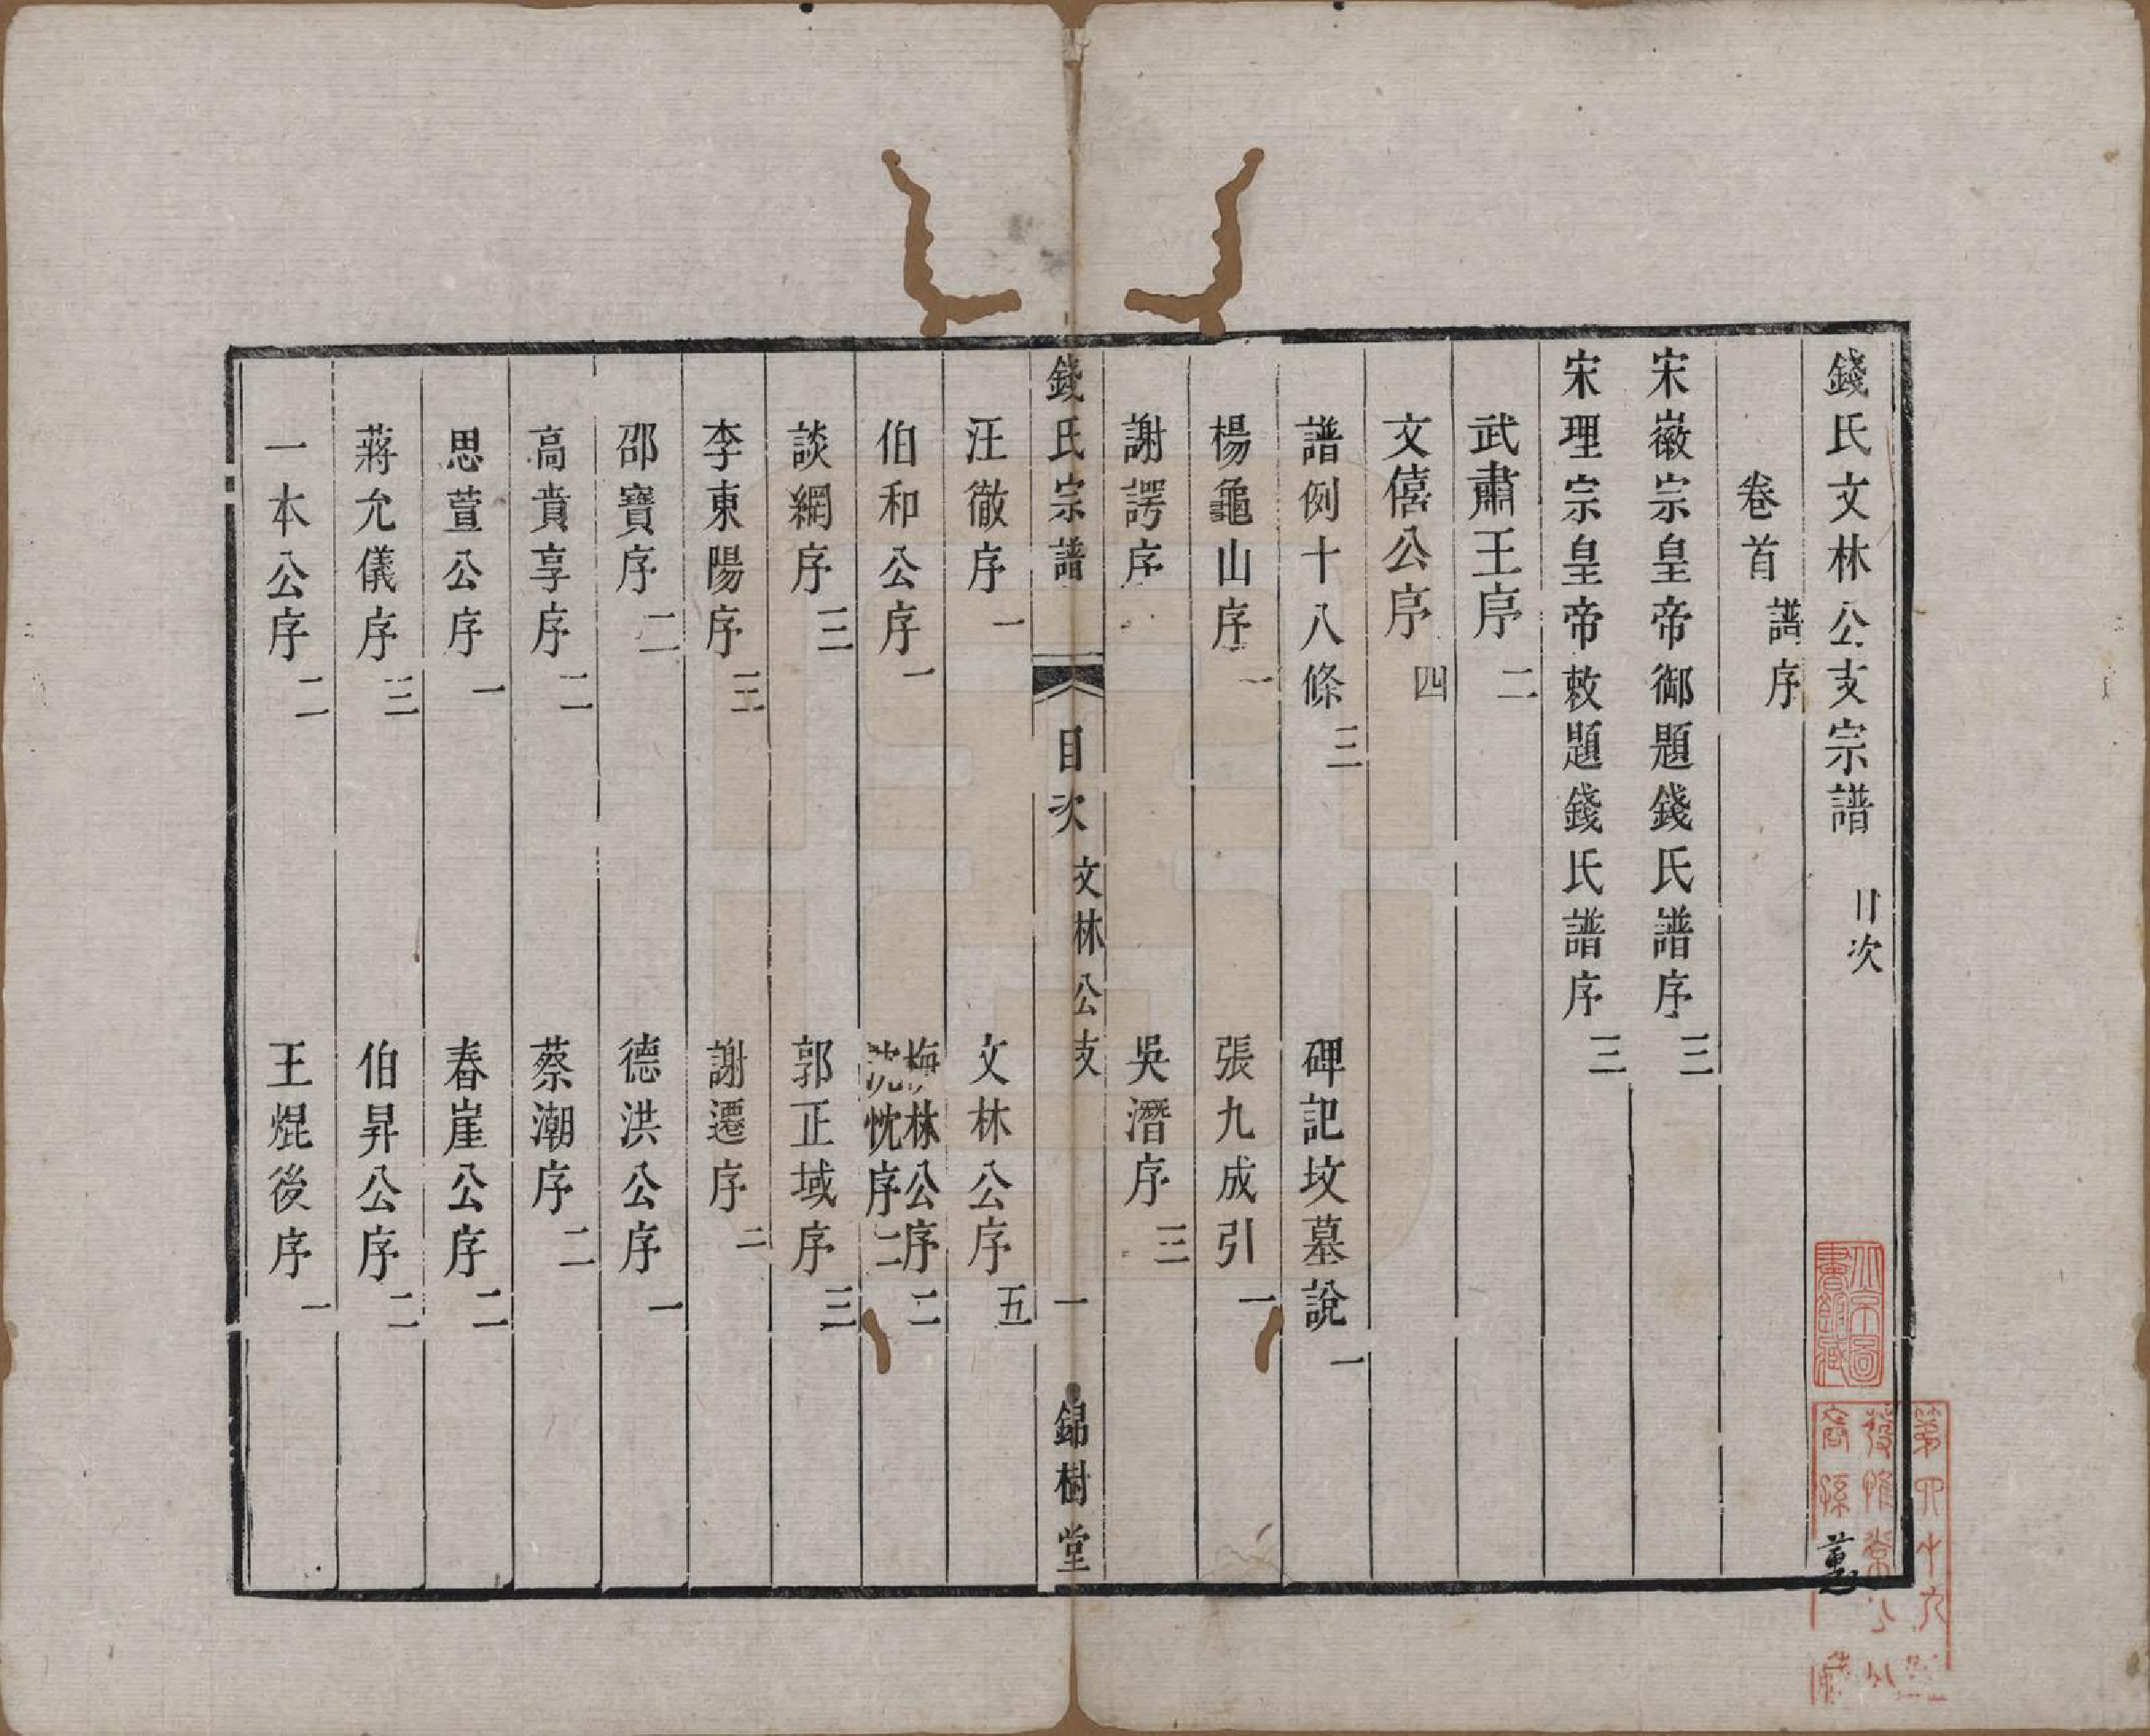 錢氏文林公支宗譜 目次
卷首 譜序
宋徽宗皇帝御題錢氏譜序 三
宋理宗皇帝敕題錢氏譜序 三
武肅王序 二
文僖公序 四
譜例十八條 三 碑記坟墓說 一
楊龜山序 一 張九成引 一
謝諤序 吳潛序 三
錢氏宗譜 目次 文林公支 一 錦樹堂
汪徹序 一 文林公序 五
伯和公序 一 梅林公序 二
沈忱序 二
談綱序 三 郭正域序 三
李東陽序 三 謝遷序 二
邵寶序 二 德洪公序 一
高賁亨序 二 蔡潮序 二
思萱公序 一 春崖公序 二
蔣允儀序 三 伯昇公序 二
一本公序 二 王焜後序 一
北京圖
書館藏